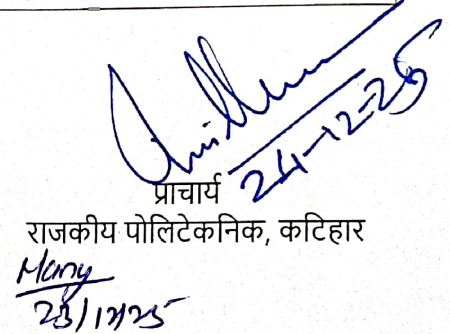 24-12-25
प्राचार्य
राजकीय पोलिटेकनिक, कटिहार
23/12/25